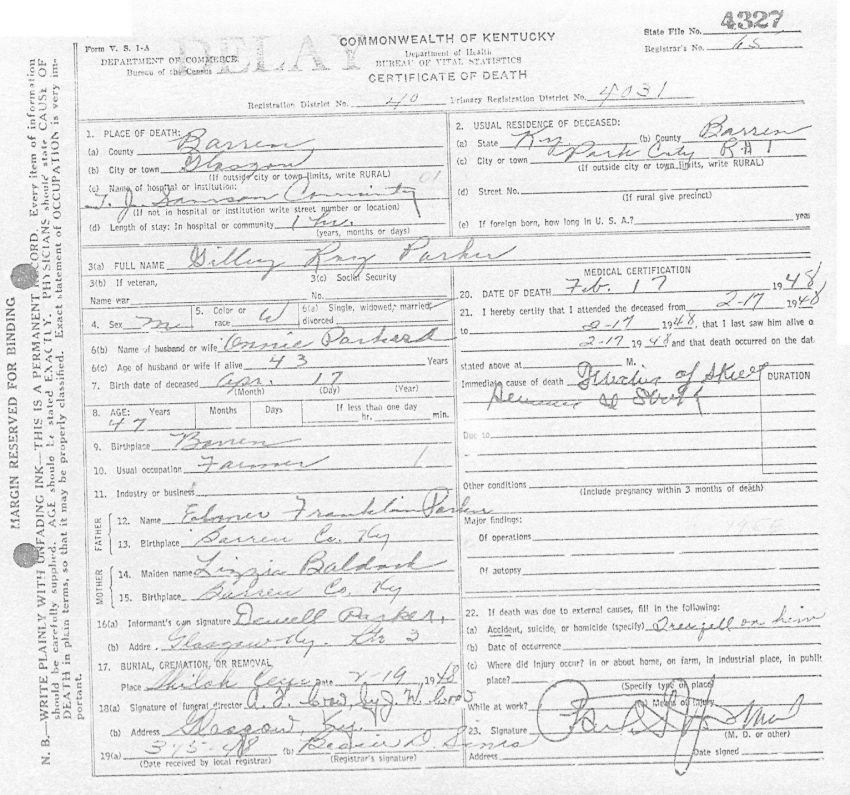 4327
COMMONWEALTH OF KENTUCKY
State File No.
Form V. S. 1-A
Department of Health
Registrar's No. 65
DEPARTMENT OF COMMERCE
BUREAU OF VITAL STATISTICS
Bureau of the Census
DELAY
CERTIFICATE OF DEATH
Registration District No. 40 Primary Registration District No. 4031
MARGIN RESERVED FOR BINDING
N. B.—WRITE PLAINLY WITH UNFADING INK—THIS IS A PERMANENT RECORD. Every item of information
should be carefully supplied. AGE should be stated EXACTLY. PHYSICIANS should state CAUSE OF
DEATH in plain terms, so that it may be properly classified. Exact statement of OCCUPATION is very im-
portant.
1. PLACE OF DEATH:
(a) County Barren
(b) City or town Glasgow
(If outside city or town limits, write RURAL)
(c) Name of hospital or institution: 01
T. J. Samson Community
(If not in hospital or institution write street number or location)
(d) Length of stay: In hospital or community 1 hr.
(years, months or days)
2. USUAL RESIDENCE OF DECEASED:
(a) State Ky (b) County Barren
(c) City or town Park City R#1
(If outside city or town limits, write RURAL)
(d) Street No.
(If rural give precinct)
(e) If foreign born, how long in U. S. A.? years
3(a) FULL NAME Gilley Ray Parker
3(b) If veteran,
3(c) Social Security
Name war
No.
4. Sex M
5. Color or
race W
6(a) Single, widowed, married,
divorced
6(b) Name of husband or wife Onnie Parker
6(c) Age of husband or wife if alive 43 Years
7. Birth date of deceased Apr. 17
(Month) (Day) (Year)
8. AGE: Years Months Days If less than one day
47 hr. min.
9. Birthplace Barren
10. Usual occupation Farmer 1
11. Industry or business
FATHER
12. Name Elmer Franklin Parker
13. Birthplace Barren Co. Ky
MOTHER
14. Maiden name Lizzie Baldock
15. Birthplace Barren Co. Ky
16(a) Informant's own signature Dewell Parker,
(b) Addre. Glasgow Ky. Rte 3
17. BURIAL, CREMATION, OR REMOVAL
Place Shiloh Cem Date 2-19, 1948
18(a) Signature of funeral director A. F. Crow by J. W. Crow
(b) Address Glasgow, Ky.
19(a) 3-5-48 (b) Bessie D. Sims
(Date received by local registrar) (Registrar's signature)
MEDICAL CERTIFICATION
20. DATE OF DEATH Feb. 17 1948
21. I hereby certify that I attended the deceased from 2-17 1948
to 2-17 1948, that I last saw him alive o
2-17 1948 and that death occurred on the dat
stated above at M.
Immediate cause of death of Skull
DURATION
Due to
Other conditions
(Include pregnancy within 3 months of death)
Major findings:
Of operations
Of autopsy
22. If death was due to external causes, fill in the following:
(a) Accident, suicide, or homicide (specify) Tree fell on him
(b) Date of occurrence
(c) Where did injury occur? in or about home, on farm, in industrial place, in public
place?
(Specify type of place)
While at work? (e) Means of injury
23. Signature
(M. D. or other)
Address Date signed